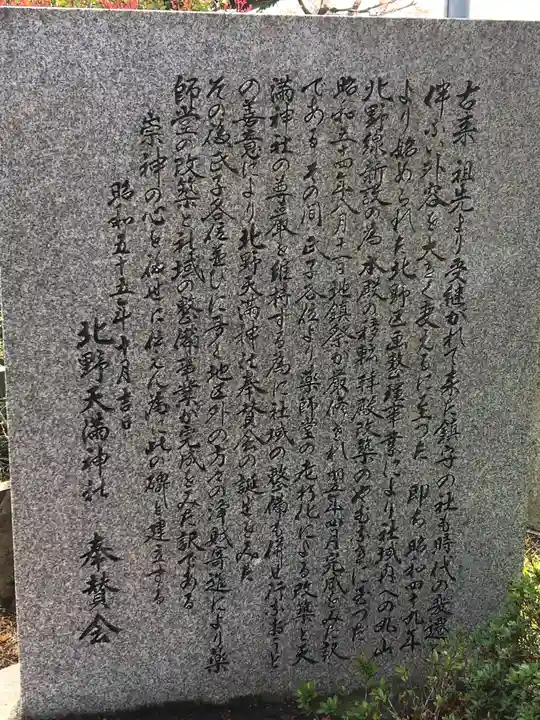 古来 祖先より受継がれて来た鎮守の社も時代の変遷に
伴ない外容を大きく変えるに至った 即ち昭和四十九年
より始められた北野区画整理事業により社域内への丸山
北野線新設の為 本殿の移転 拝殿改築のやむなきに至った
昭和五十四年八月十一日地鎮祭が厳修され 翌年四月完成をみた訳
である その間 氏子各位より薬師堂の老朽化による改築と天
満神社の尊厳を維持する為に社域の整備も併せ行なおうと
の善意により北野天満神社奉賛会の誕生をみた
その後 氏子各位並びに多く地区外の方々の浄財寄進により薬
師堂の改築と社域の整備事業が完成をみた訳である
崇神の心を後世に伝えん為 此の碑を建立する
昭和五十五年十月吉日
北野天満神社 奉賛会